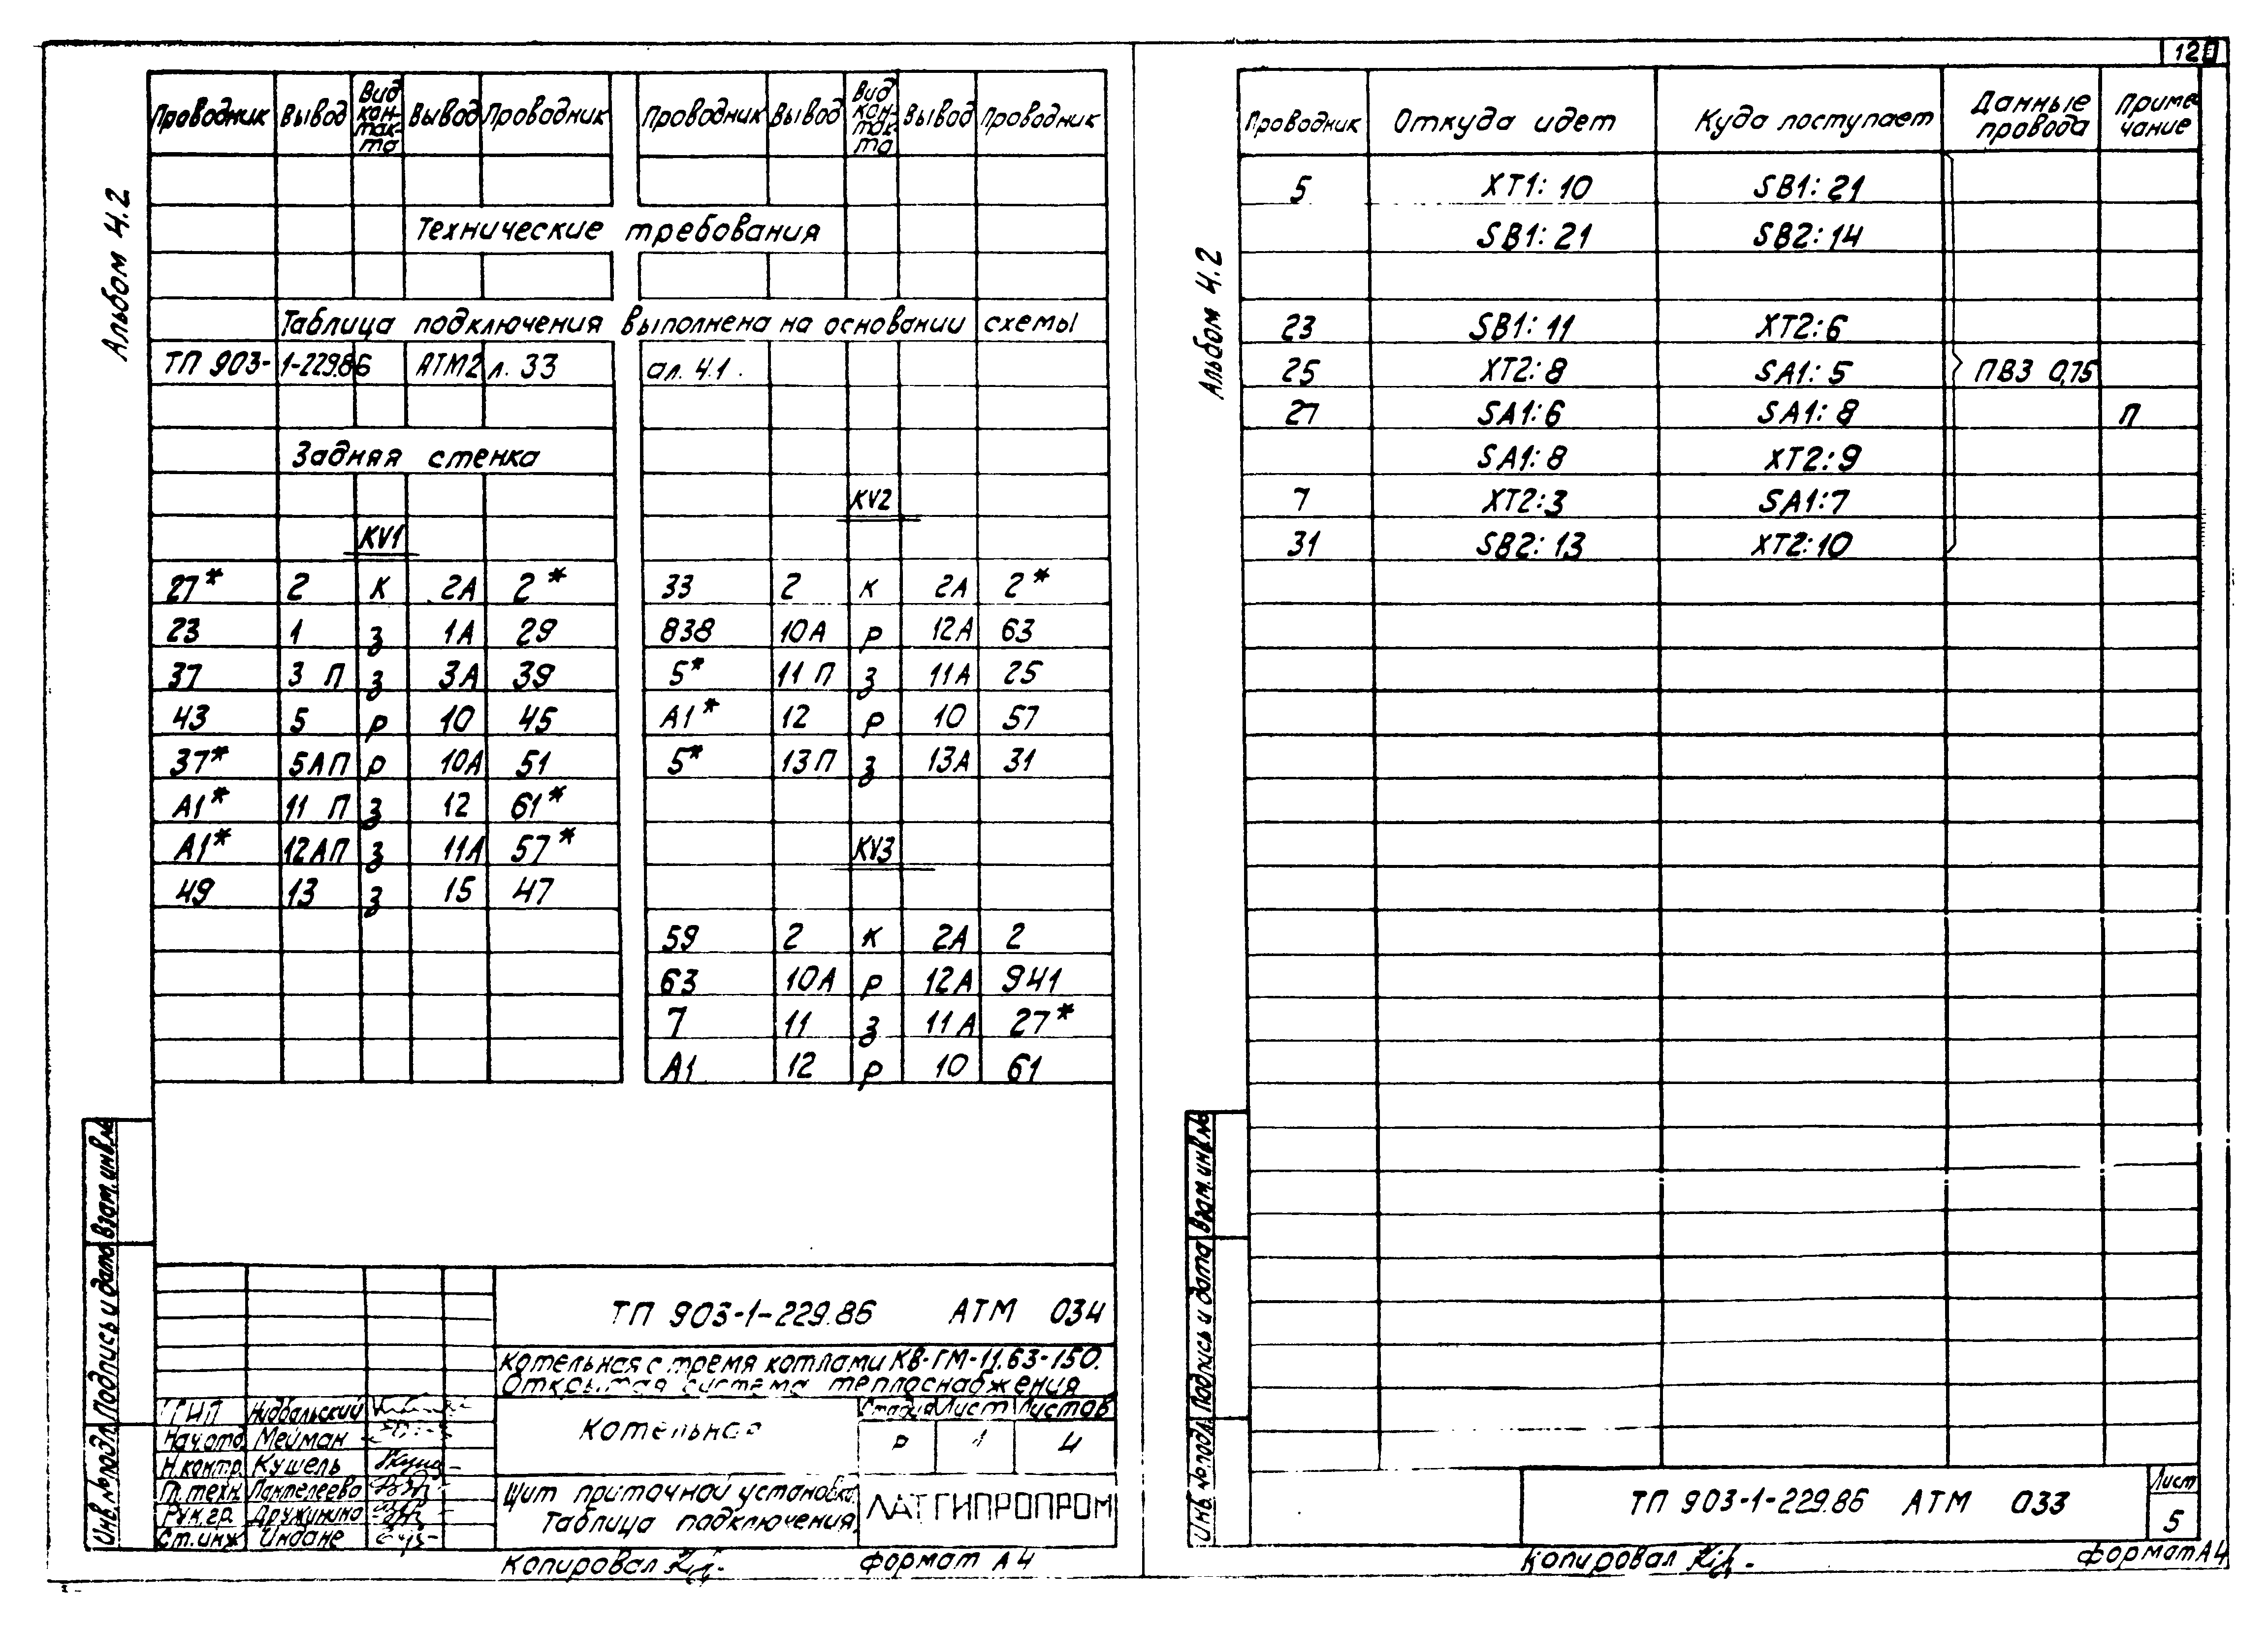 Альбом 4.2
Проводник Вывод Вид контакта Вывод Проводник Проводник Вывод Вид контакта Вывод Проводник
Технические требования
Таблица подключения выполнена на основании схемы
ТП 903-1-229.86 АТМ2 л. 33 ал. 4.1.
Задняя стенка
KV1
27* 2 К 2А 2*
23 1 З 1А 29
37 3 П З 3А 39
43 5 Р 10 45
37* 5А П Р 10А 51
А1* 11 П З 12 61*
А1* 12А П З 11А 57*
49 13 З 15 47
KV2
33 2 К 2А 2*
838 10А Р 12А 63
5* 11 П З 11А 25
А1* 12 Р 10 57
5* 13 П З 13А 31
KV3
59 2 К 2А 2
63 10А Р 12А 941
7 11 З 11А 27*
А1 12 Р 10 61
Взам. инв. №
Подпись и дата
Инв. № подл.
ТП 903-1-229.86 АТМ 034
Котельная с тремя котлами КВ-ГМ-11,63-150.
Открытая система теплоснабжения
ГИП Нидбальский
Нач. отд. Мейман
Н. контр. Кушель
Гл. техн. Пантелеева
Рук. гр. Дружинина
Ст. инж. Индане
Котельная
Стадия Лист Листов
Р 1 4
Щит приточной установки.
Таблица подключения.
ЛАТГИПРОПРОМ
Копировал
формат А4
120
Альбом 4.2
Проводник Откуда идет Куда поступает Данные провода Примечание
5 XT1: 10 SB1: 21
SB1: 21 SB2: 14
23 SB1: 11 XT2: 6
25 XT2: 8 SA1: 5 ПВ3 0,75
27 SA1: 6 SA1: 8 П
SA1: 8 XT2: 9
7 XT2: 3 SA1: 7
31 SB2: 13 XT2: 10
Взам. инв. №
Подпись и дата
Инв. № подл.
ТП 903-1-229.86 АТМ 033
Лист
5
Копировал
формат А4